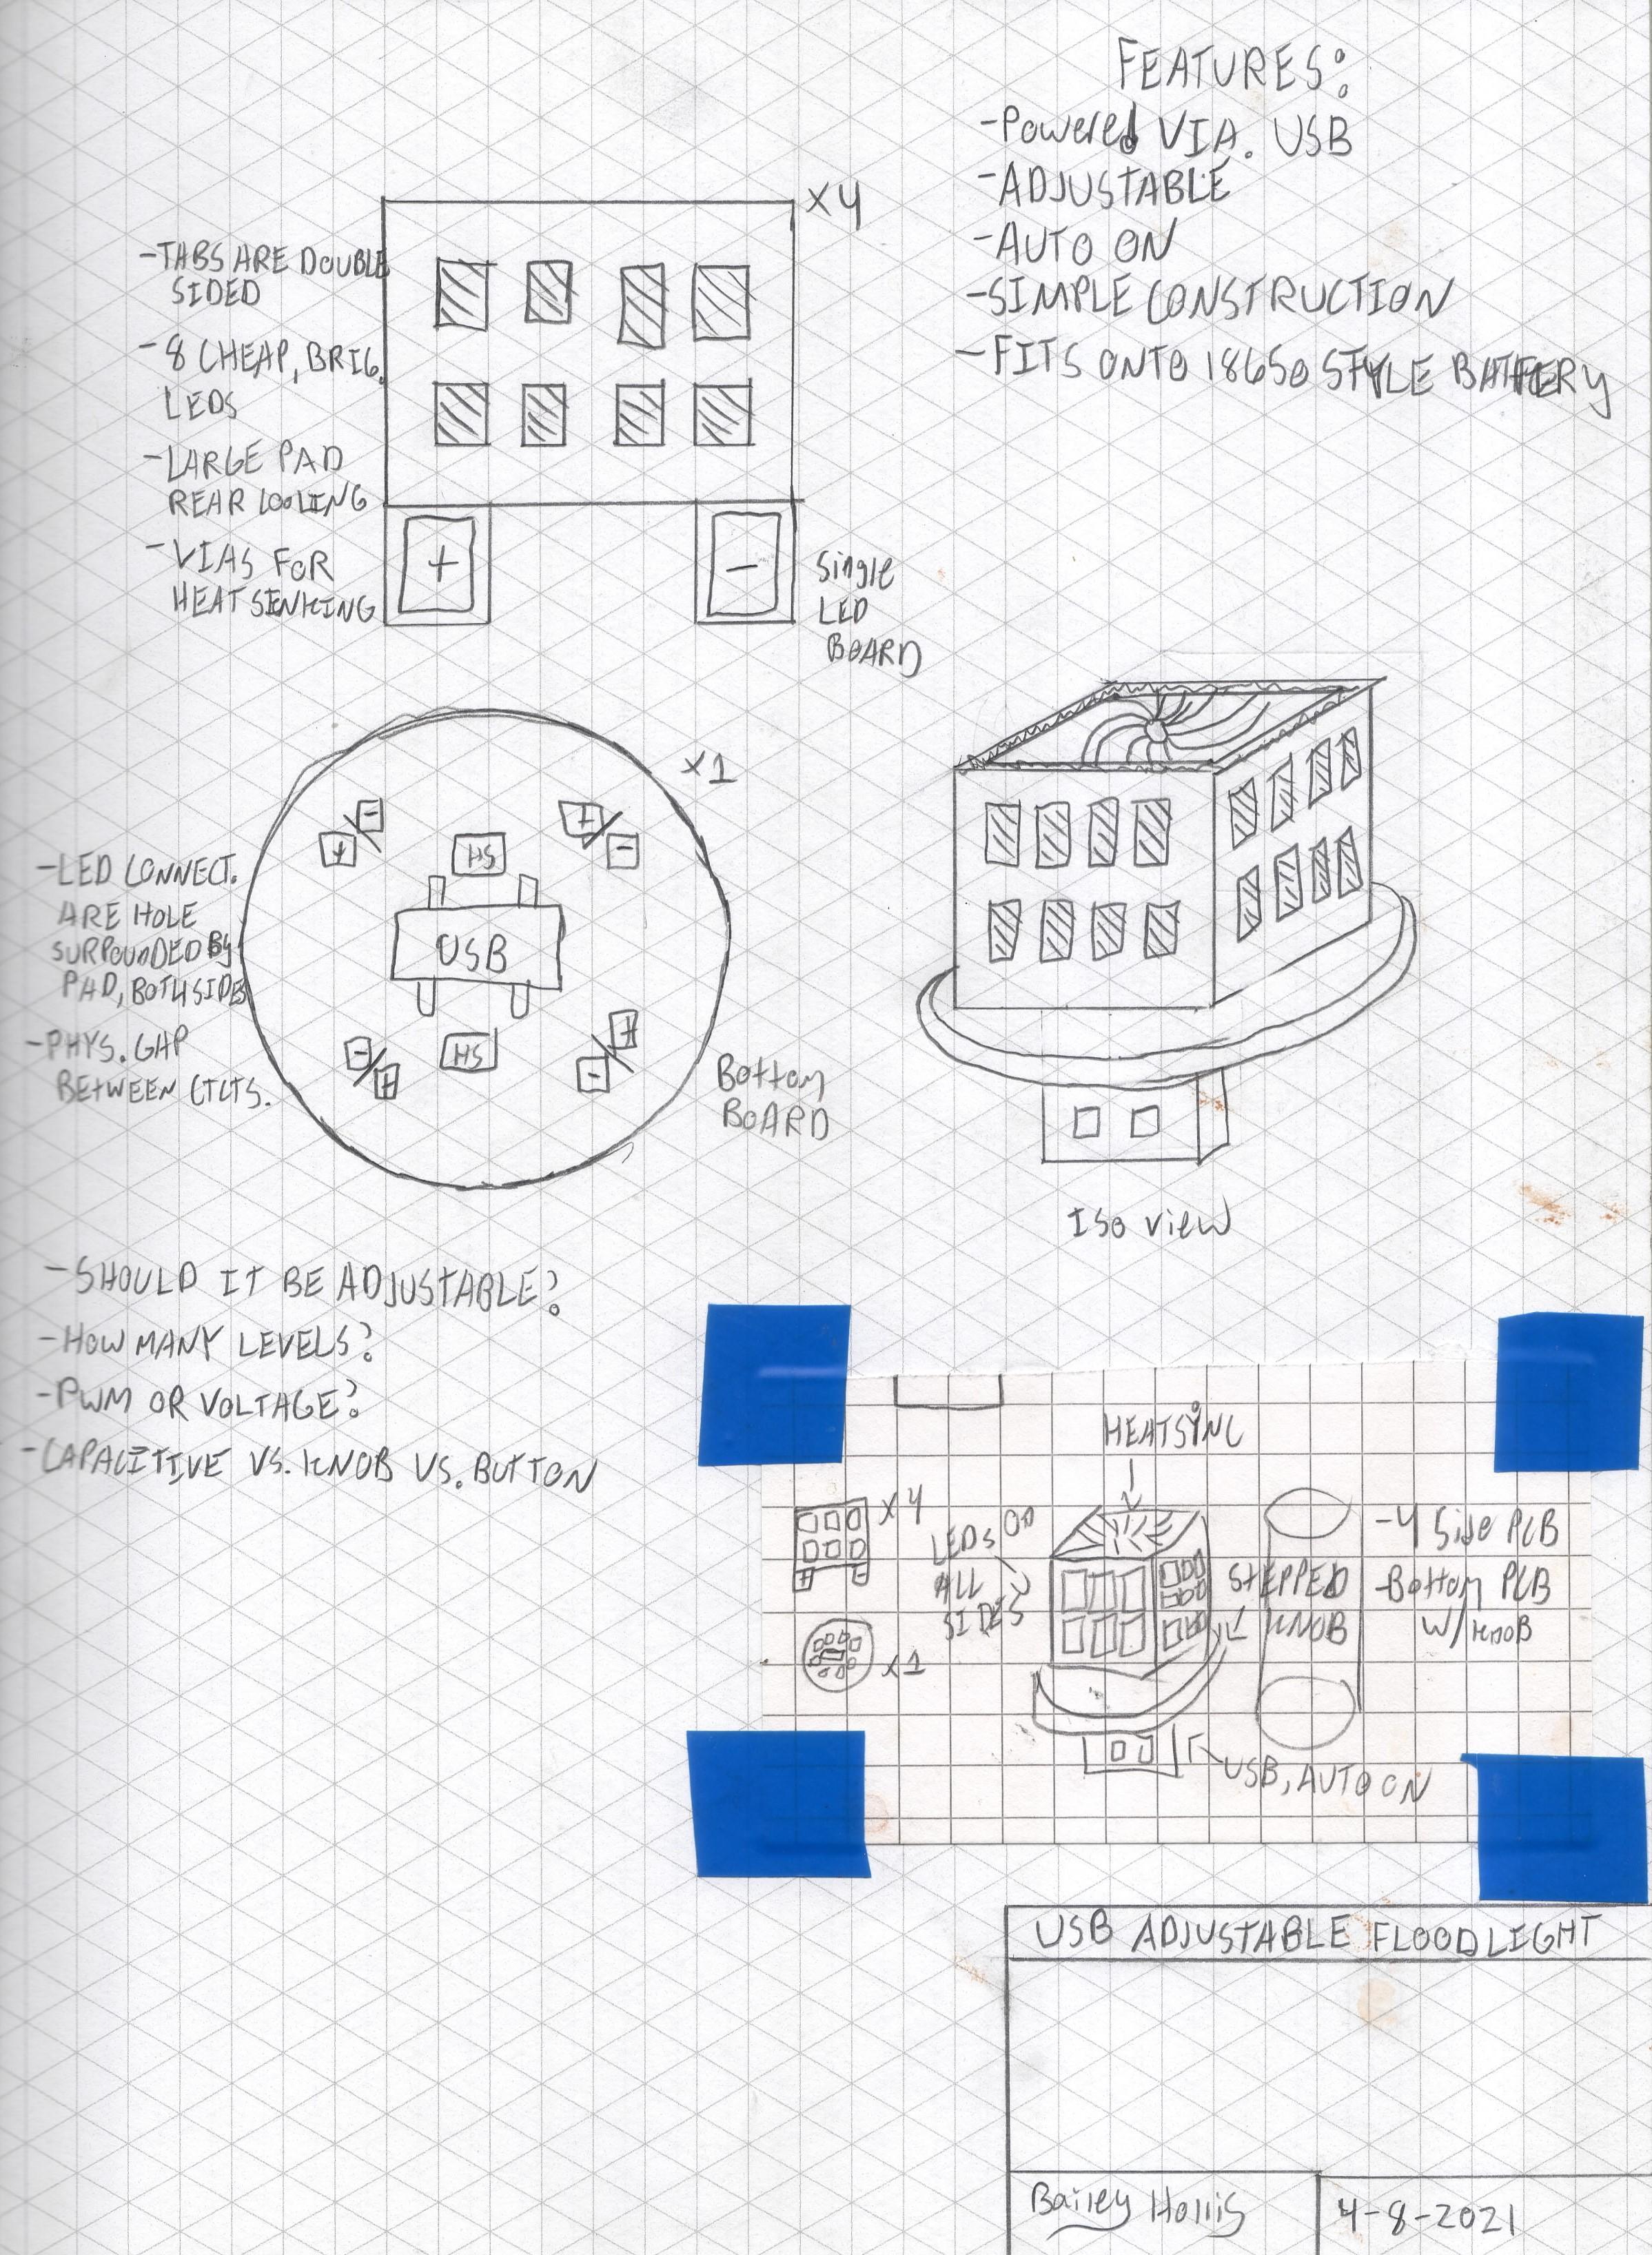 FEATURES:
-Powered VIA. USB
-ADJUSTABLE
-AUTO ON
-SIMPLE CONSTRUCTION
-FITS ONTO 18650 STYLE BATTERY
x4
-TABS ARE DOUBLE
SIDED
-8 CHEAP, BRIG.
LEDS
-LARGE PAD
REAR COOLING
-VIAS FOR
HEAT SINKING
+
-
Single
LED
BOARD
x1
-
+
+
-
HS
USB
HS
-
+
+
-
-LED CONNECT.
ARE HOLE
SURROUNDED By
PAD, BOTH SIDES
-PHYS. GAP
BETWEEN CTCTS.
Bottom
BOARD
Iso view
-SHOULD IT BE ADJUSTABLE?
-HOW MANY LEVELS?
-PWM OR VOLTAGE?
-CAPACITIVE VS. KNOB VS. BUTTON
HEATSINC
x4
+
-
x1
LEDS ON
ALL
SIDES
STEPPED
KNOB
-4 Side PCB
-Bottom PCB
w/ KNOB
USB, AUTO ON
USB ADJUSTABLE FLOODLIGHT
Bailey Hollis
4-8-2021